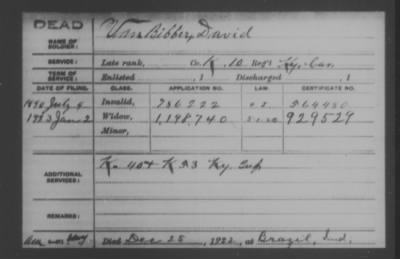 DEAD
NAME OF SOLDIER: Van Bibber, David
SERVICE: Late rank, Co. K, 10 Reg't Ky. Cav.
TERM OF SERVICE: Enlisted , 1 Discharged , 1
DATE OF FILING. CLASS. APPLICATION NO. LAW. CERTIFICATE NO.
1890 July 4 Invalid, 786222 564480
1923 Jan 2 Widow, 1,198,740 929529
Minor,
ADDITIONAL SERVICES: K 40 & K 53 Ky. Inf
REMARKS:
Died Dec 25, 1922, at Brazil, Ind.